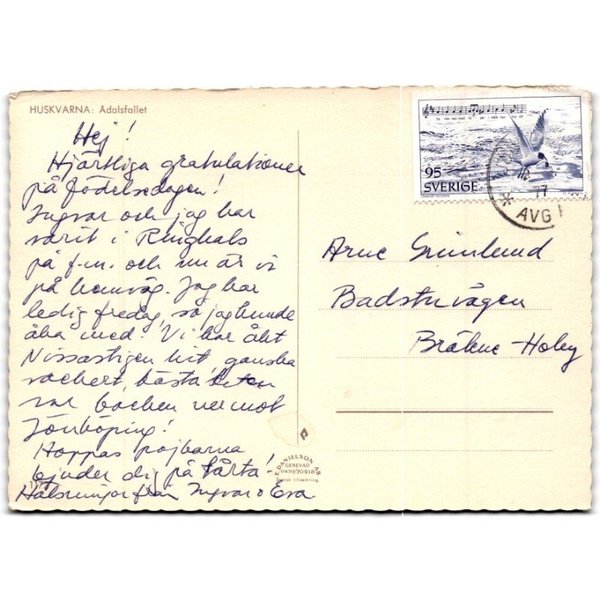 HUSKVARNA: Ädalsfallet
Hej!
Hjärtliga gratulationer
på födelsedagen!
Ingvar och jag har
varit i Ringhals
på f.m. och nu är vi
på hemväg. Jag har
ledig fredag, så jag kunde
åka med. Vi har åkt
Nissastigen hit, ganska
vackert, bästa biten
var backen ner mot
Jönköping!
Hoppas pojkarna
bjuder dig på tårta!
Hälsningar från Ingvar o Eva
95
SVERIGE
AVG
77
Arne Grimlund
Badstuvägen
Bräkne-Hoby
E. DANIELSON AB
GENEVAD